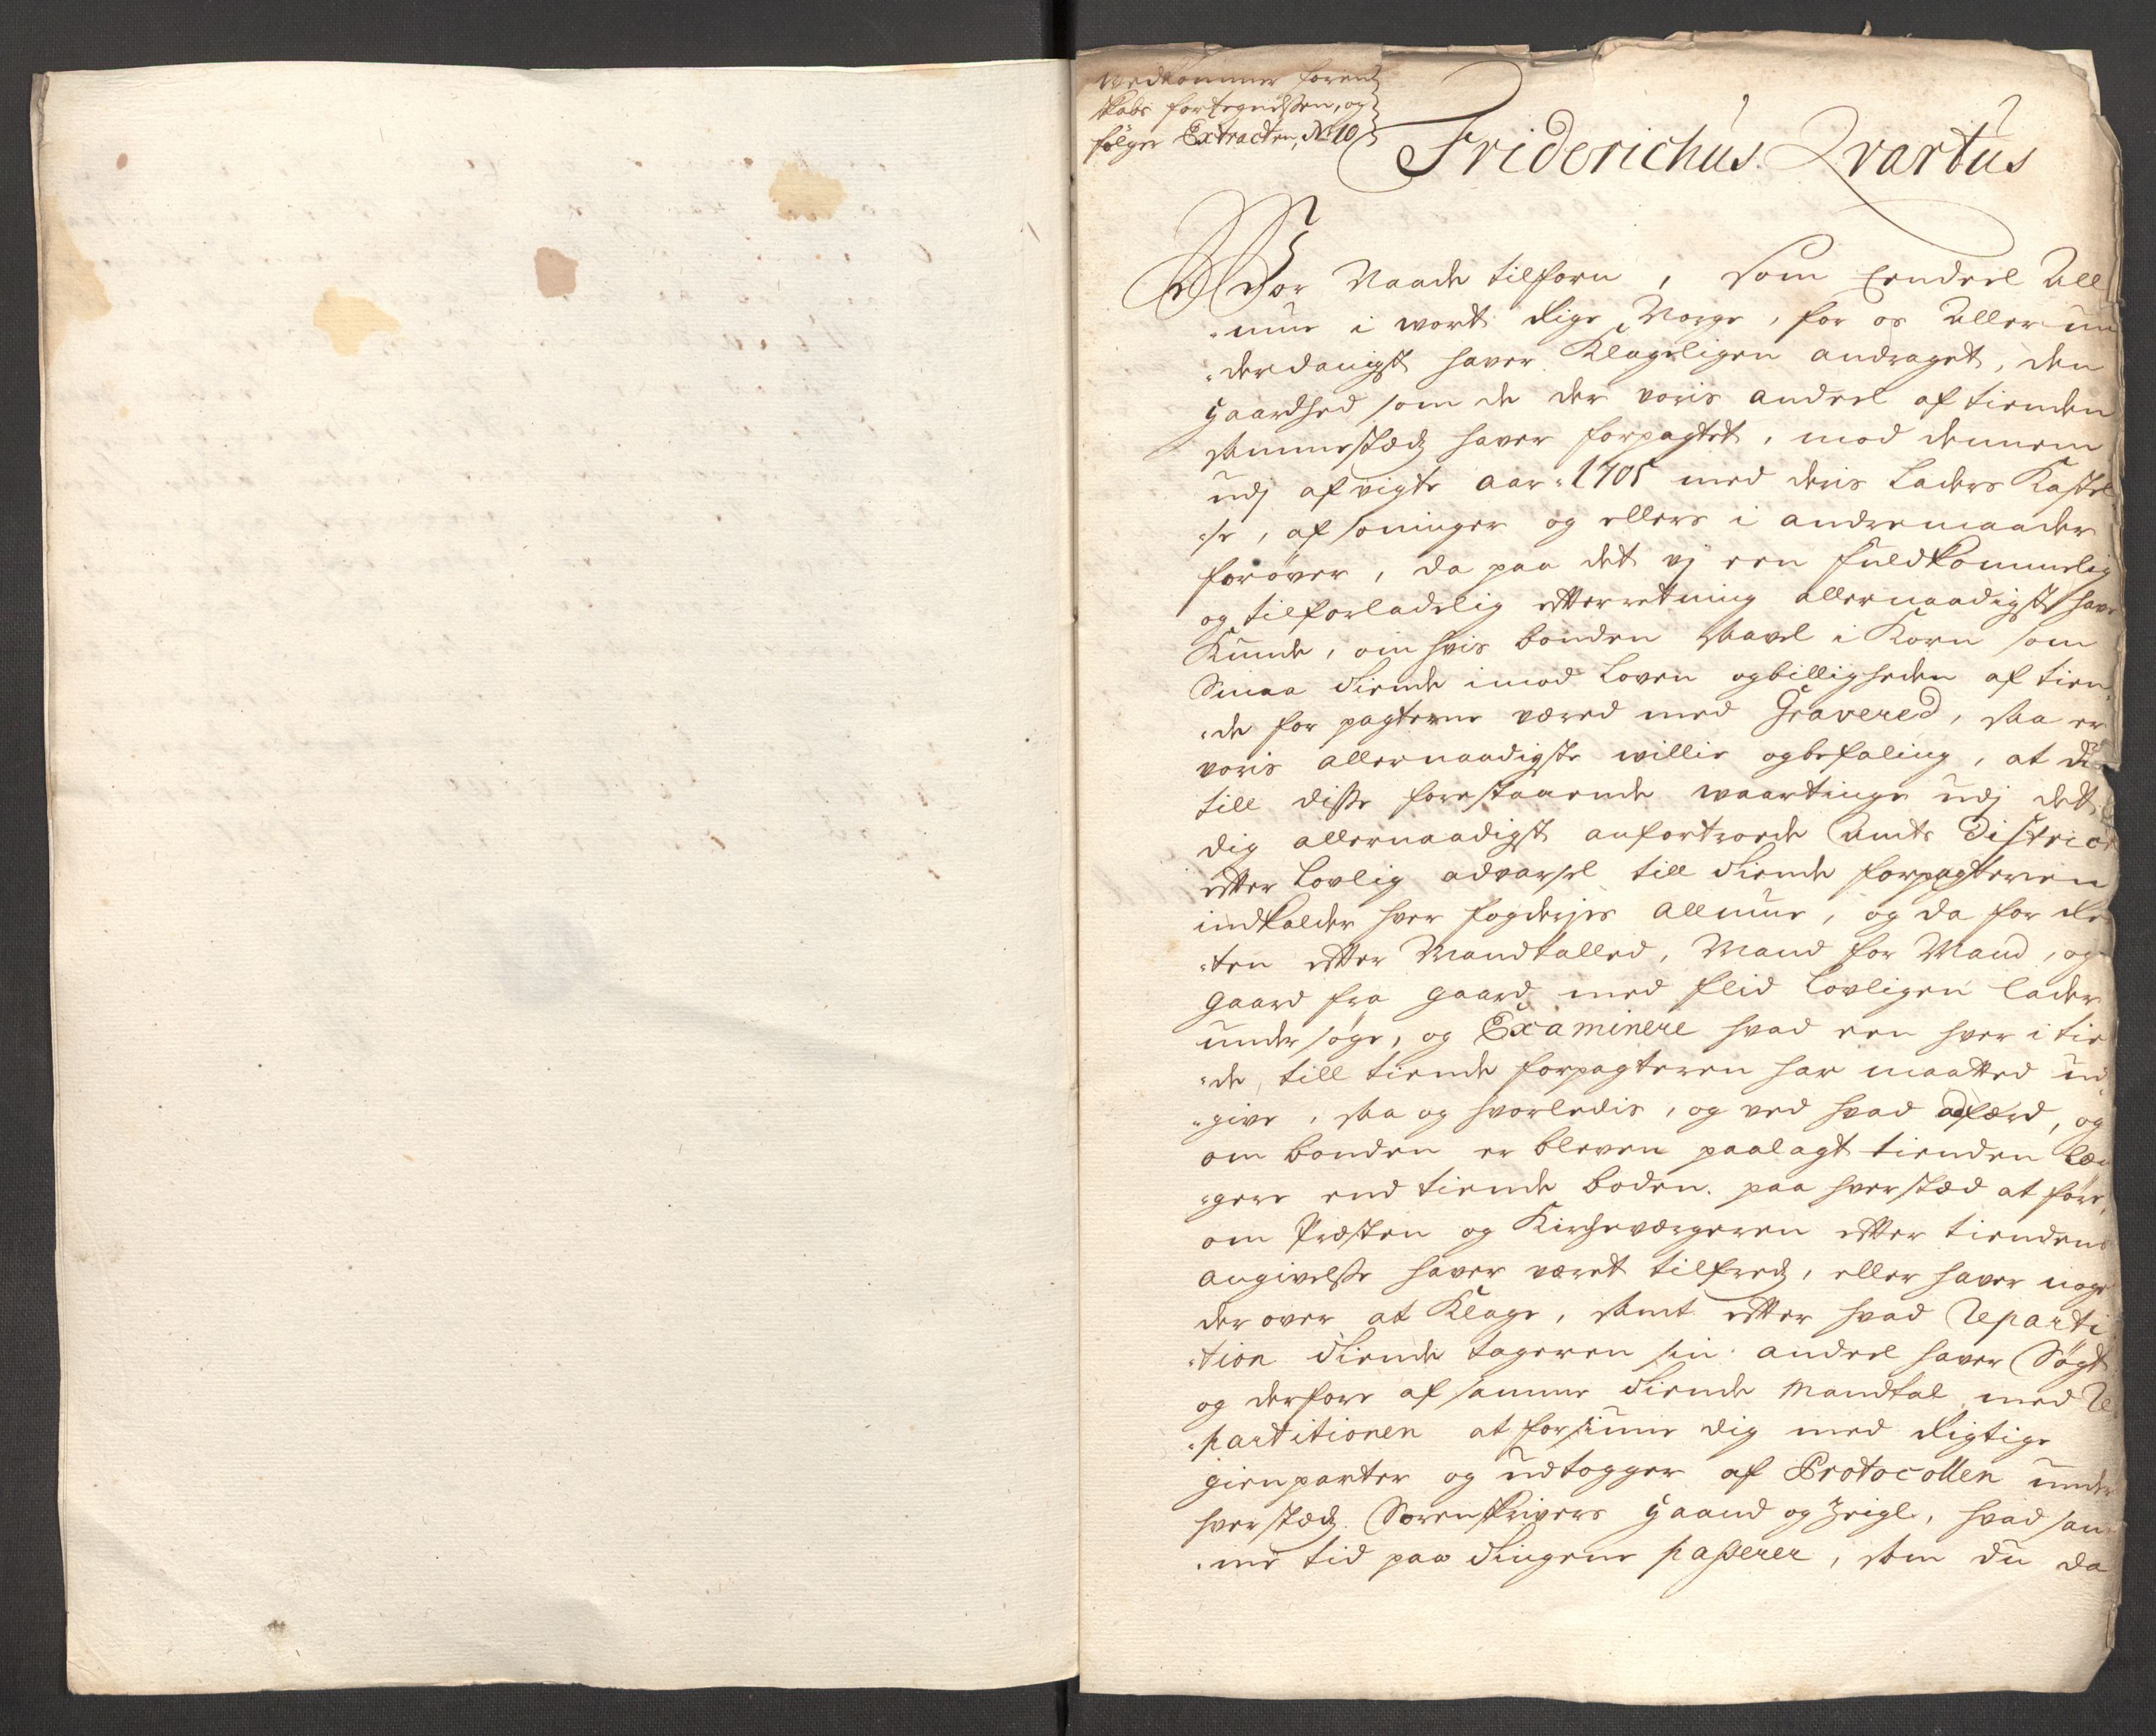 vedkommer foren
skabs fortegnelsen, og
følger Extracten, No 10
Friderichus Qvartus
Vor Naade tilforn, Som Eendeel All
mue i wort Rige Norge, for os Allerun
derdanigst haver Klageligen andraget, den
haardhed som de der voris andeel af tienden
sammestædz haver forpagtet, mod dennem
udj afvigte aar 1705 med deris Laders Kastel
se, afsoninger og ellers i andremaader
forøver, da paa det vj een fuldkommelig
og tilforladelig etterretning allernaadigst have
Kunde, om hvis bonden saavel i Korn som
Smaa tiende imod Loven og billigheden af tien
de forpagterne vered med Gravered, saa er
voris allernaadigste willie og befaling, at du
till disse forestaaende waartinge udj dett
dig allernaadigst anfortroede Amts District
etter Lovlig advarsel till tiende forpagteren
indkalder hver fogderjes Allmue, og da for Re
ten etter Mandtalled, Mand for Mand, og
gaard fra gaard med flid Lovligen lader
undersøge, og Examinere hvad een hver i tie
de till tiende forpagteren har maatted ud
give, saa og hvorledis, og ved hvad adfærd, og
om bonden er bleven paalagt tienden læn
gere end tiende boden paa hver stæd at føre,
om Præsten og Kircheværgeren etter tiendens
angivelsse haver været tilfredz, eller haver noge
der over at Klage, samt etter hvad Reparti
tion tiende tageren sin andeel haver Søgt
og derfore af samme tiende Mandtal med Re
partitionen at forsiune dig med Rigtige
gienparter og udtogger af Protocollen under
hver stædz Sorenskrivers haand og Zeigl, hvad sam
me tid paa tingene passerer, som du da